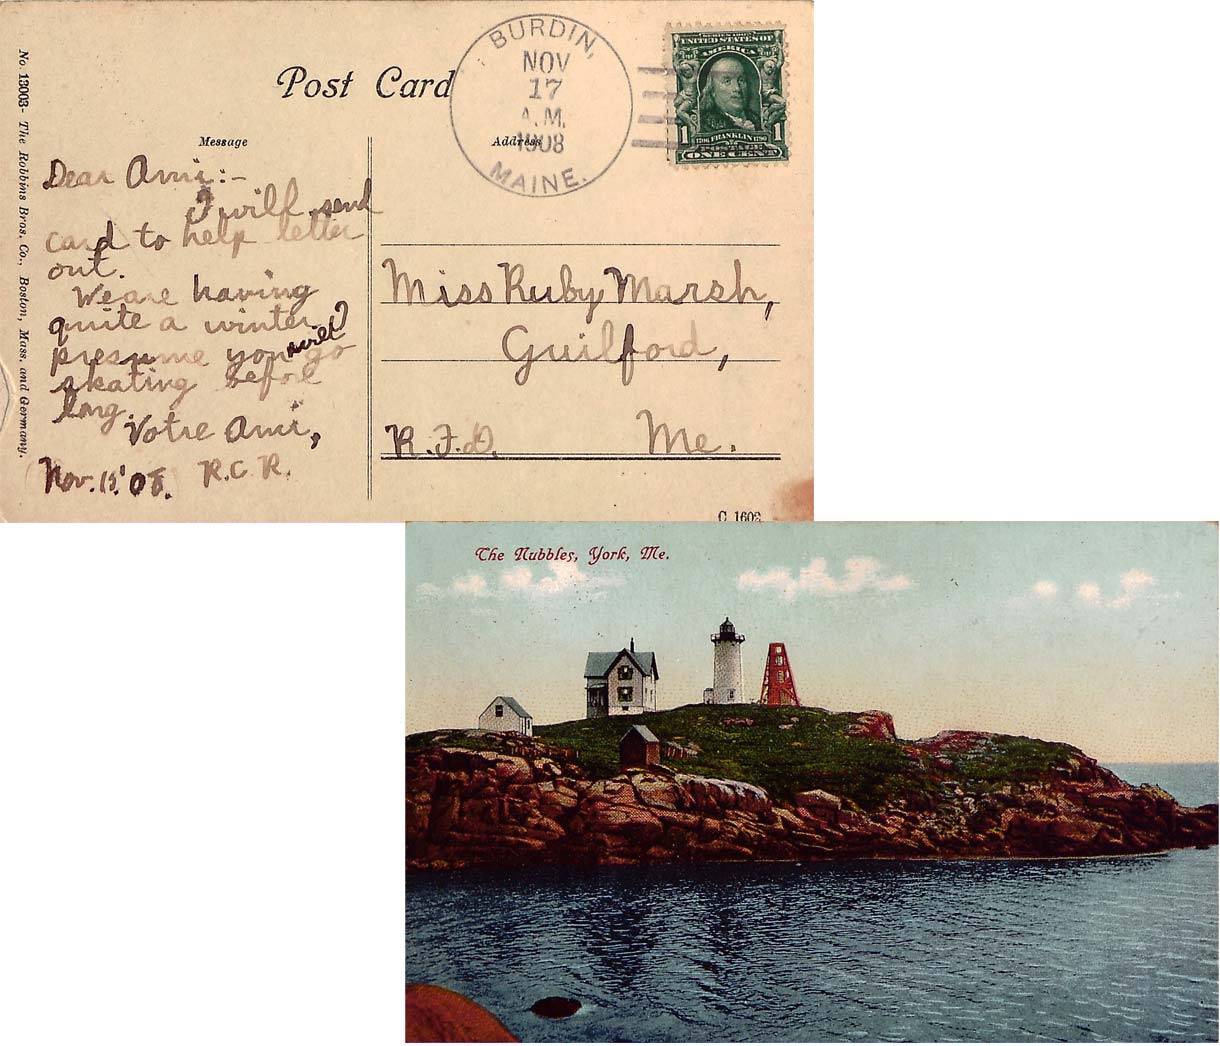 Post Card
BURDIN,
NOV
17
A.M.
1908
MAINE.
SERIES 1902
UNITED STATES OF
AMERICA
1706 FRANKLIN 1790
1 1
POSTAGE
ONE CENT
No. 13003- The Robbins Bros. Co., Boston, Mass. and Germany.
Message
Address
Dear Ami:-
I will send
card to help letter
out.
We are having
quite a winter. I
presume you will go
skating before
long.
Votre Ami,
Nov. 15, '08. R.C.R.
Miss Ruby Marsh,
Guilford,
R.F.D. Me.
C 1602
The Nubbles, York, Me.